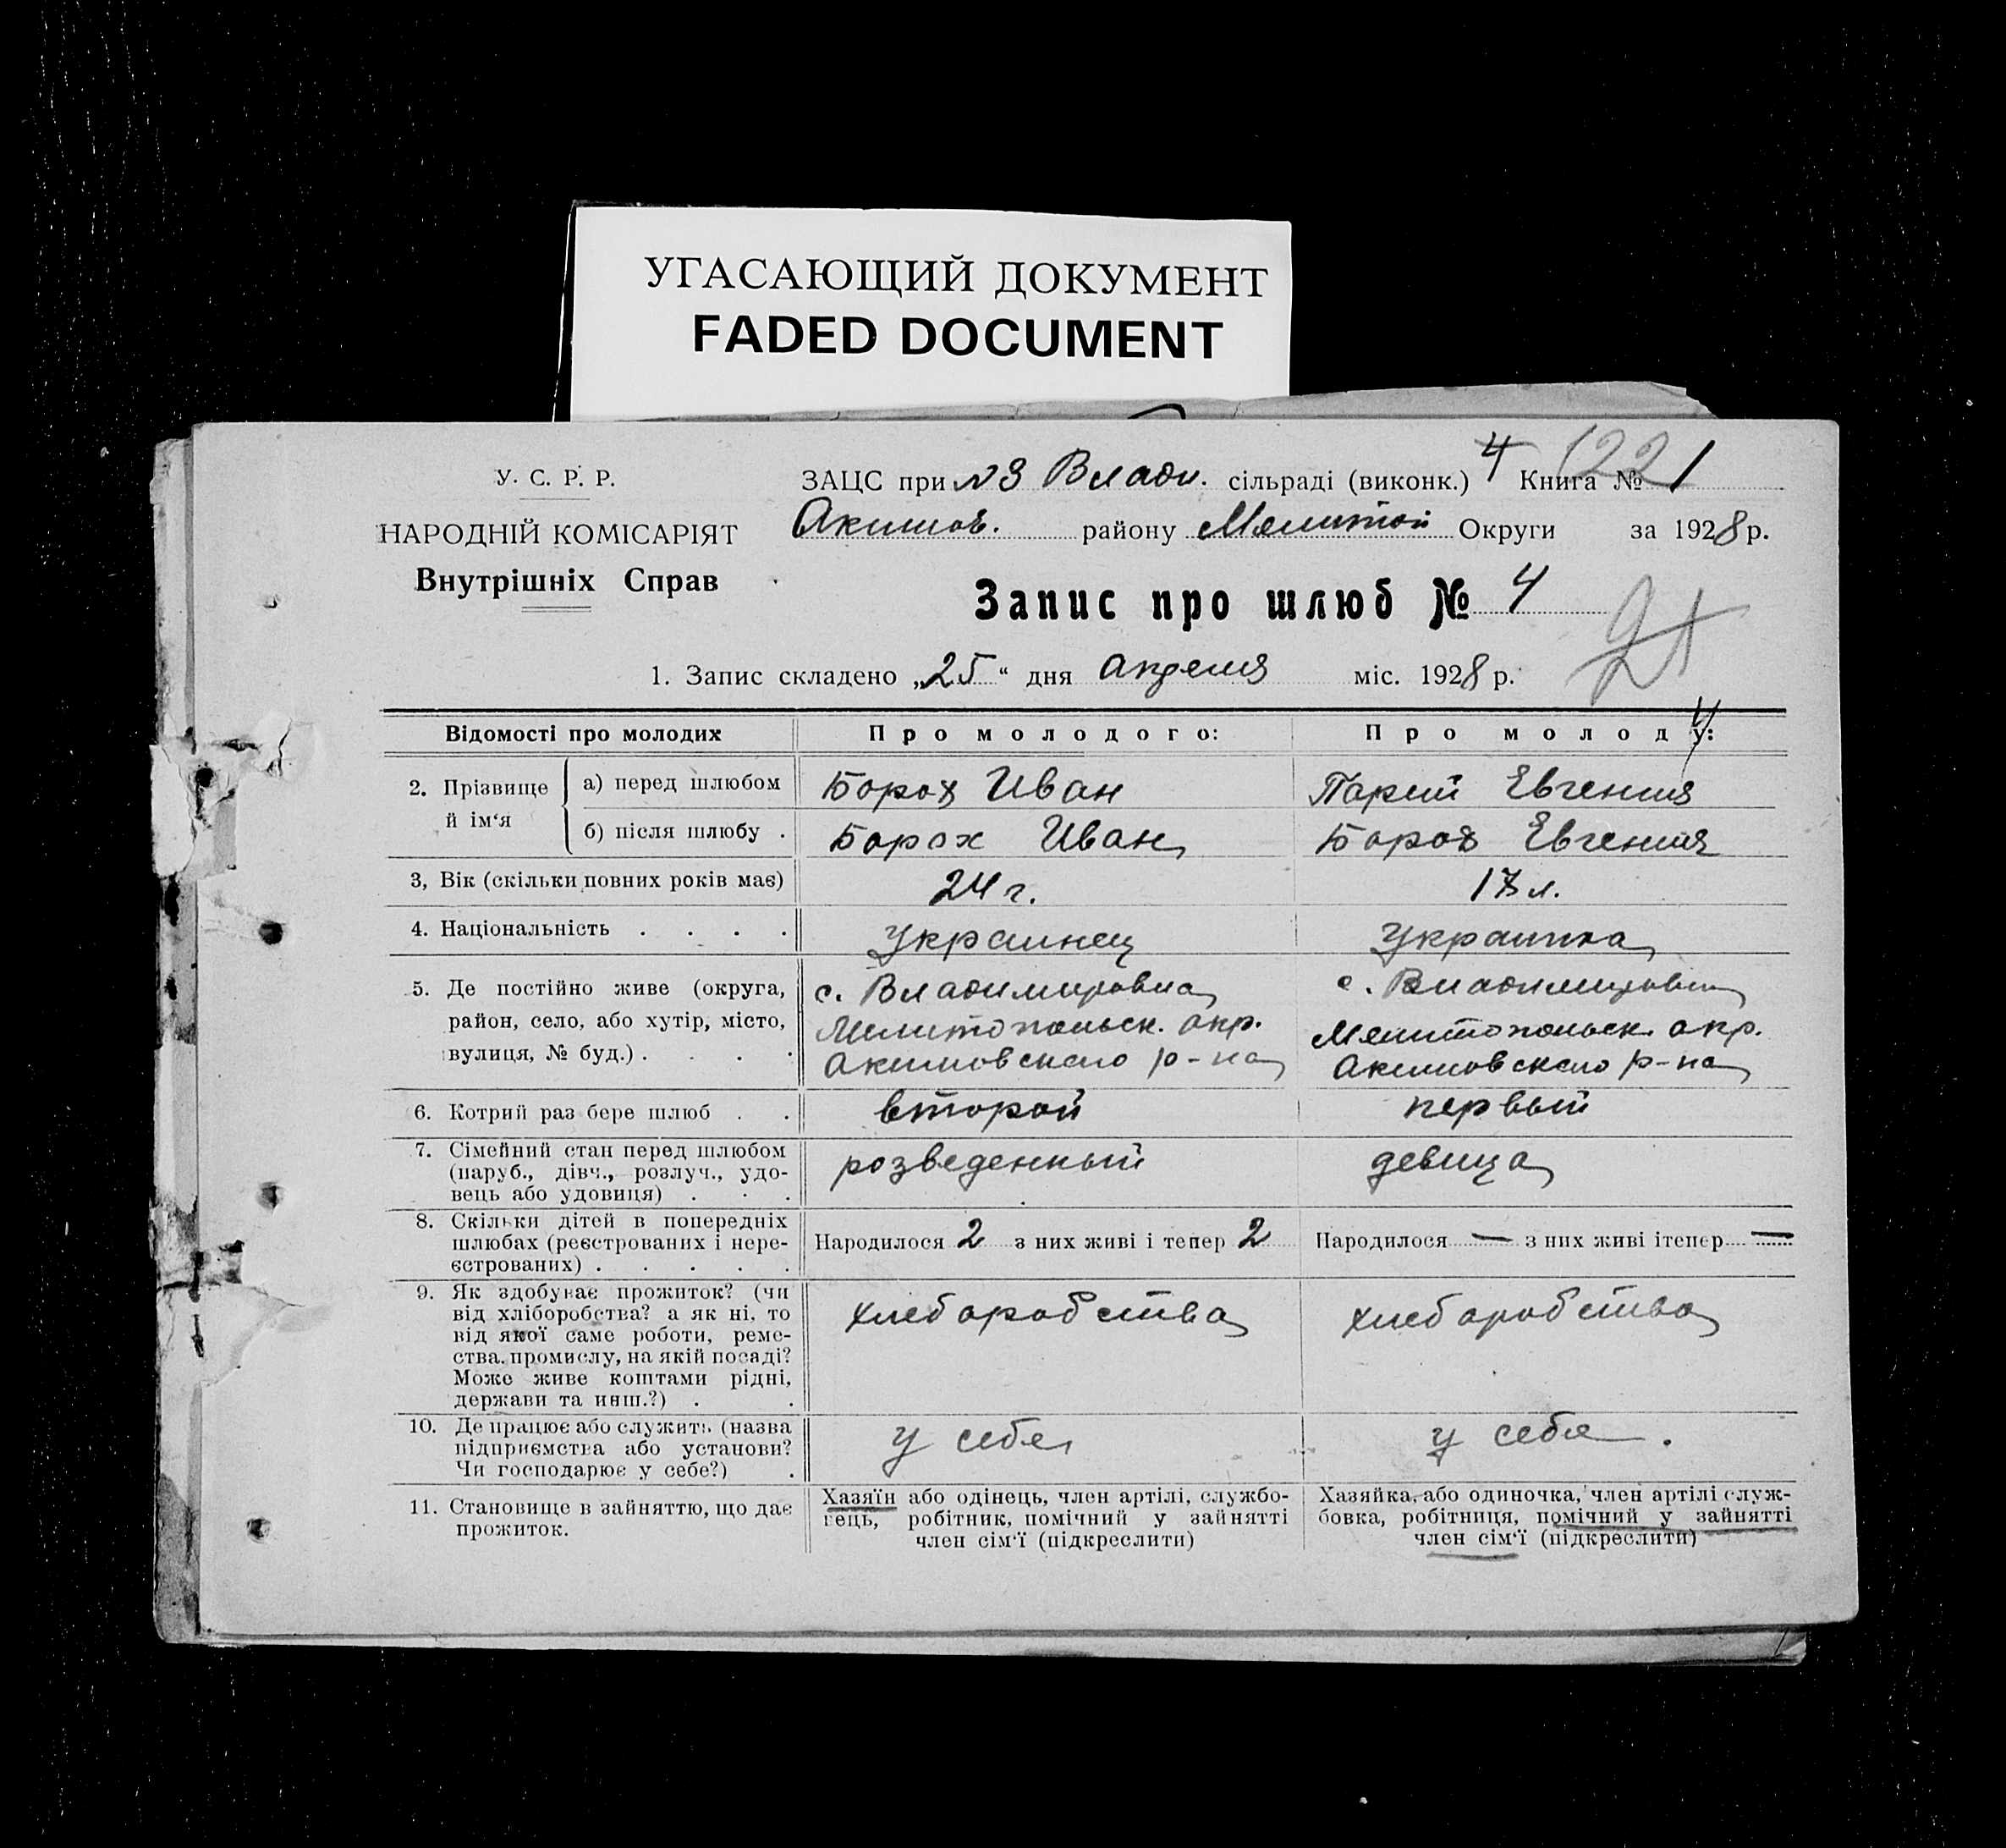 УГАСАЮЩИЙ ДОКУМЕНТ
FADED DOCUMENT
У. С. Р. Р.
НАРОДНІЙ КОМІСАРІЯТ
Внутрішніх Справ
ЗАЦС при №3 Влади. сільраді (виконк.) 4 Книга № 1
221
Акимов. району Мелитой Округи за 1928 р.
Запис про шлюб № 4
1. Запис складено „25“ дня апреля міс. 1928 р.
Відомості про молодих
Про молодого:
Про молоду:
2. Прізвище й ім‘я
а) перед шлюбом Борох Иван Парий Евгения
б) після шлюбу . Борох Иван Борох Евгения
3, Вік (скільки повних років має) 24 г. 17 л.
4. Національність . . . . Украинец Украинка
5. Де постійно живе (округа,
район, село, або хутір, місто,
вулиця, № буд.) . . . .
с. Владимировка
Мелитопольск. окр.
Акимовского р-на
с. Владимировка
Мелитопольск. окр.
Акимовского р-на
6. Котрий раз бере шлюб . . второй первый
7. Сімейний стан перед шлюбом
(паруб., дівч., розлуч., удо-
вець або удовиця) . . .
розведенный
девица
8. Скільки дітей в попередніх
шлюбах (реєстрованих і нере-
єстрованих) . . . . .
Народилося 2 з них живі і тепер 2
Народилося — з них живі ітепер —
9. Як здобуває прожиток? (чи
від хліборобства? а як ні, то
від якої саме роботи, реме-
ства, промислу, на якій посаді?
Може живе коштами рідні,
держави та инш.?) . .
хлебаробства
хлебаробства
10. Де працює або служить (назва
підприємства або установи?
Чи господарює у себе?) .
у себе
у себе.
11. Становище в зайняттю, що дає
прожиток.
Хазяїн або одінець, член артілі, службо-
вець, робітник, помічний у зайнятті
член сім‘ї (підкреслити)
Хазяйка, або одиночка, член артілі служ-
бовка, робітниця, помічний у зайнятті
член сім‘ї (підкреслити)